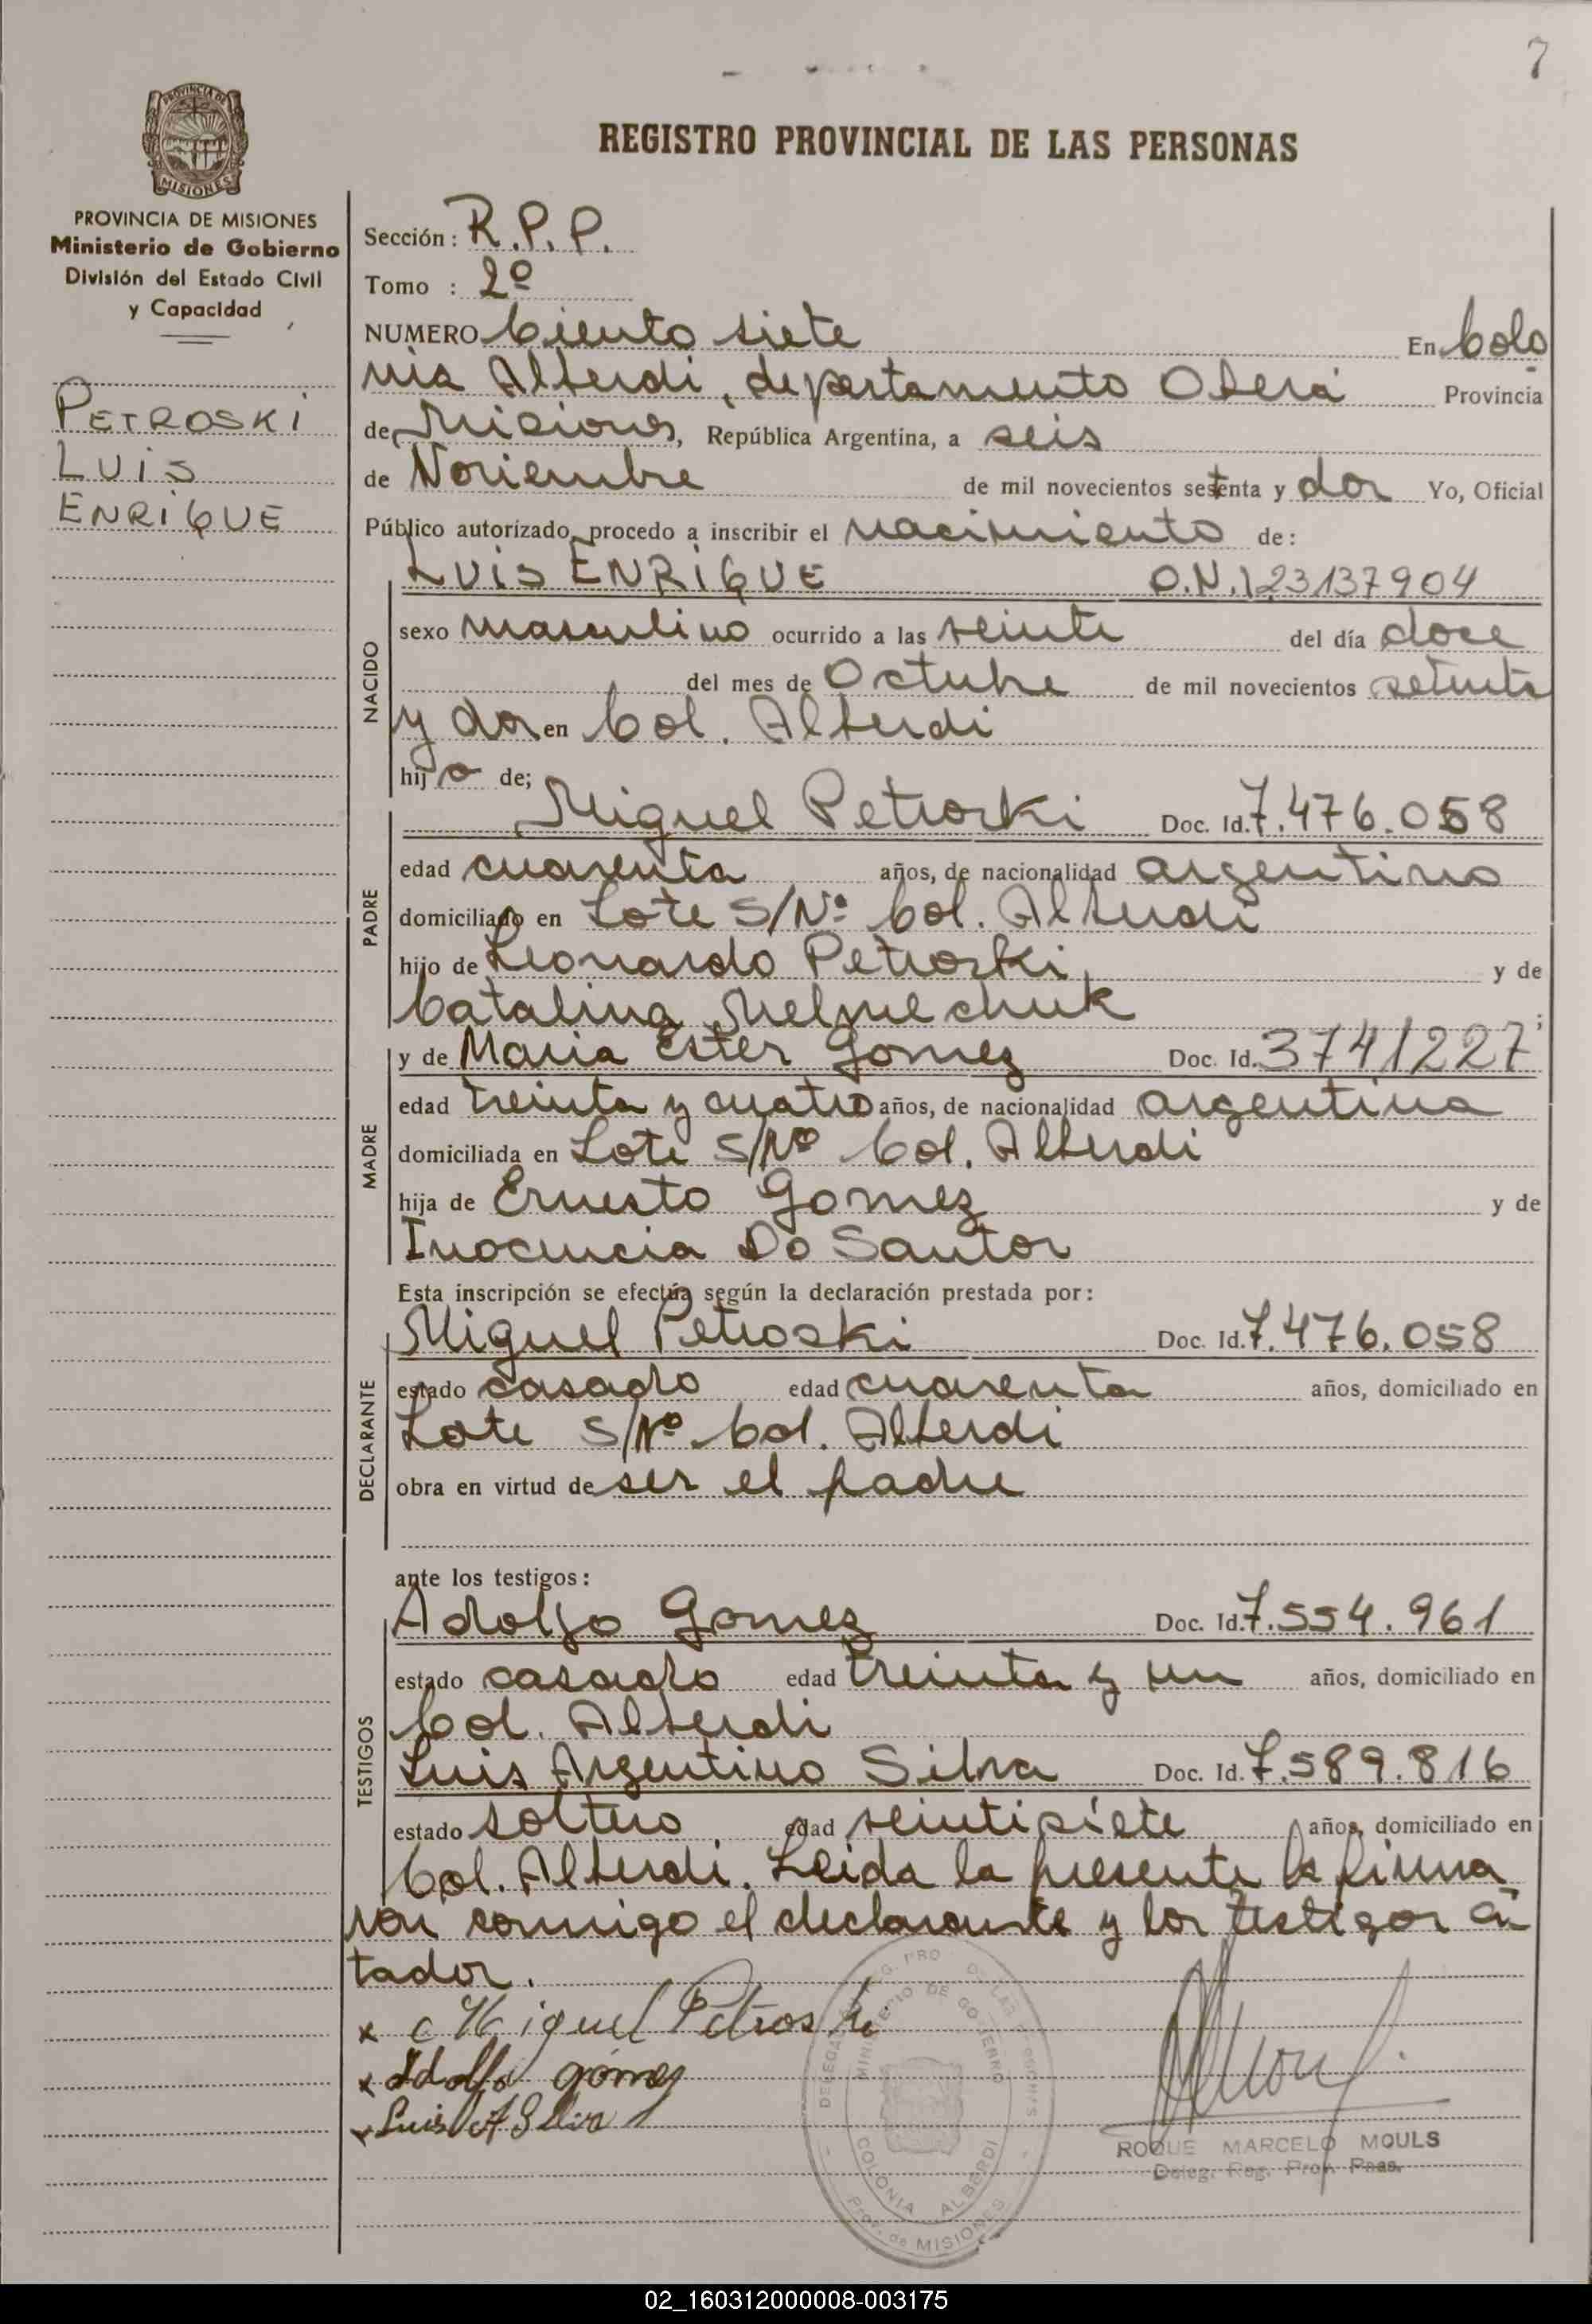 7
REGISTRO PROVINCIAL DE LAS PERSONAS
PROVINCIA DE
MISIONES
PROVINCIA DE MISIONES
Ministerio de Gobierno
División del Estado Civil
y Capacidad
PETROSKI
LUIS
ENRIQUE
Sección: R.P.P.
Tomo : 2º
NUMERO Ciento siete En Colo
nia Alberdi, departamento Oberá Provincia
de Misiones, República Argentina, a seis
de Noviembre de mil novecientos setenta y dos Yo, Oficial
Público autorizado, procedo a inscribir el nacimiento de:
NACIDO
LUIS ENRIQUE O.N.I 23137904
sexo masculino ocurrido a las veinte del día doce
del mes de Octubre de mil novecientos setenta
y dos en Col. Alberdi
hijo de;
PADRE
Miguel Petroski Doc. Id. 7.476.058
edad cuarenta años, de nacionalidad argentino
domiciliado en Lote S/Nº Col. Alberdi
hijo de Leonardo Petroski y de
Catalina Melnechuk ;
MADRE
y de Maria Ester Gomez Doc. Id. 3741227
edad treinta y cuatro años, de nacionalidad argentina
domiciliada en Lote S/Nº Col. Alberdi
hija de Ernesto Gomez y de
Inocencia Do Santos
Esta inscripción se efectúa según la declaración prestada por:
DECLARANTE
Miguel Petroski Doc. Id. 7.476.058
estado casado edad cuarenta años, domiciliado en
Lote S/Nº Col. Alberdi
obra en virtud de ser el padre
ante los testigos:
TESTIGOS
Adolfo Gomez Doc. Id. 7.554.961
estado casado edad treinta y un años, domiciliado en
Col. Alberdi
Luis Argentino Silva Doc. Id. 7.589.816
estado soltero edad veintisiete años, domiciliado en
Col. Alberdi. Leida la presente la firma
ron conmigo el declarante y los testigos ci
tados.
x Miguel Petroski
x Adolfo gómez
x Luis A Silva
MINISTERIO DE GOBIERNO
COLONIA ALBERDI
Prov. de MISIONES
ROQUE MARCELO MOULS
Deleg. Reg. Prov. Pers.
02_160312000008-003175